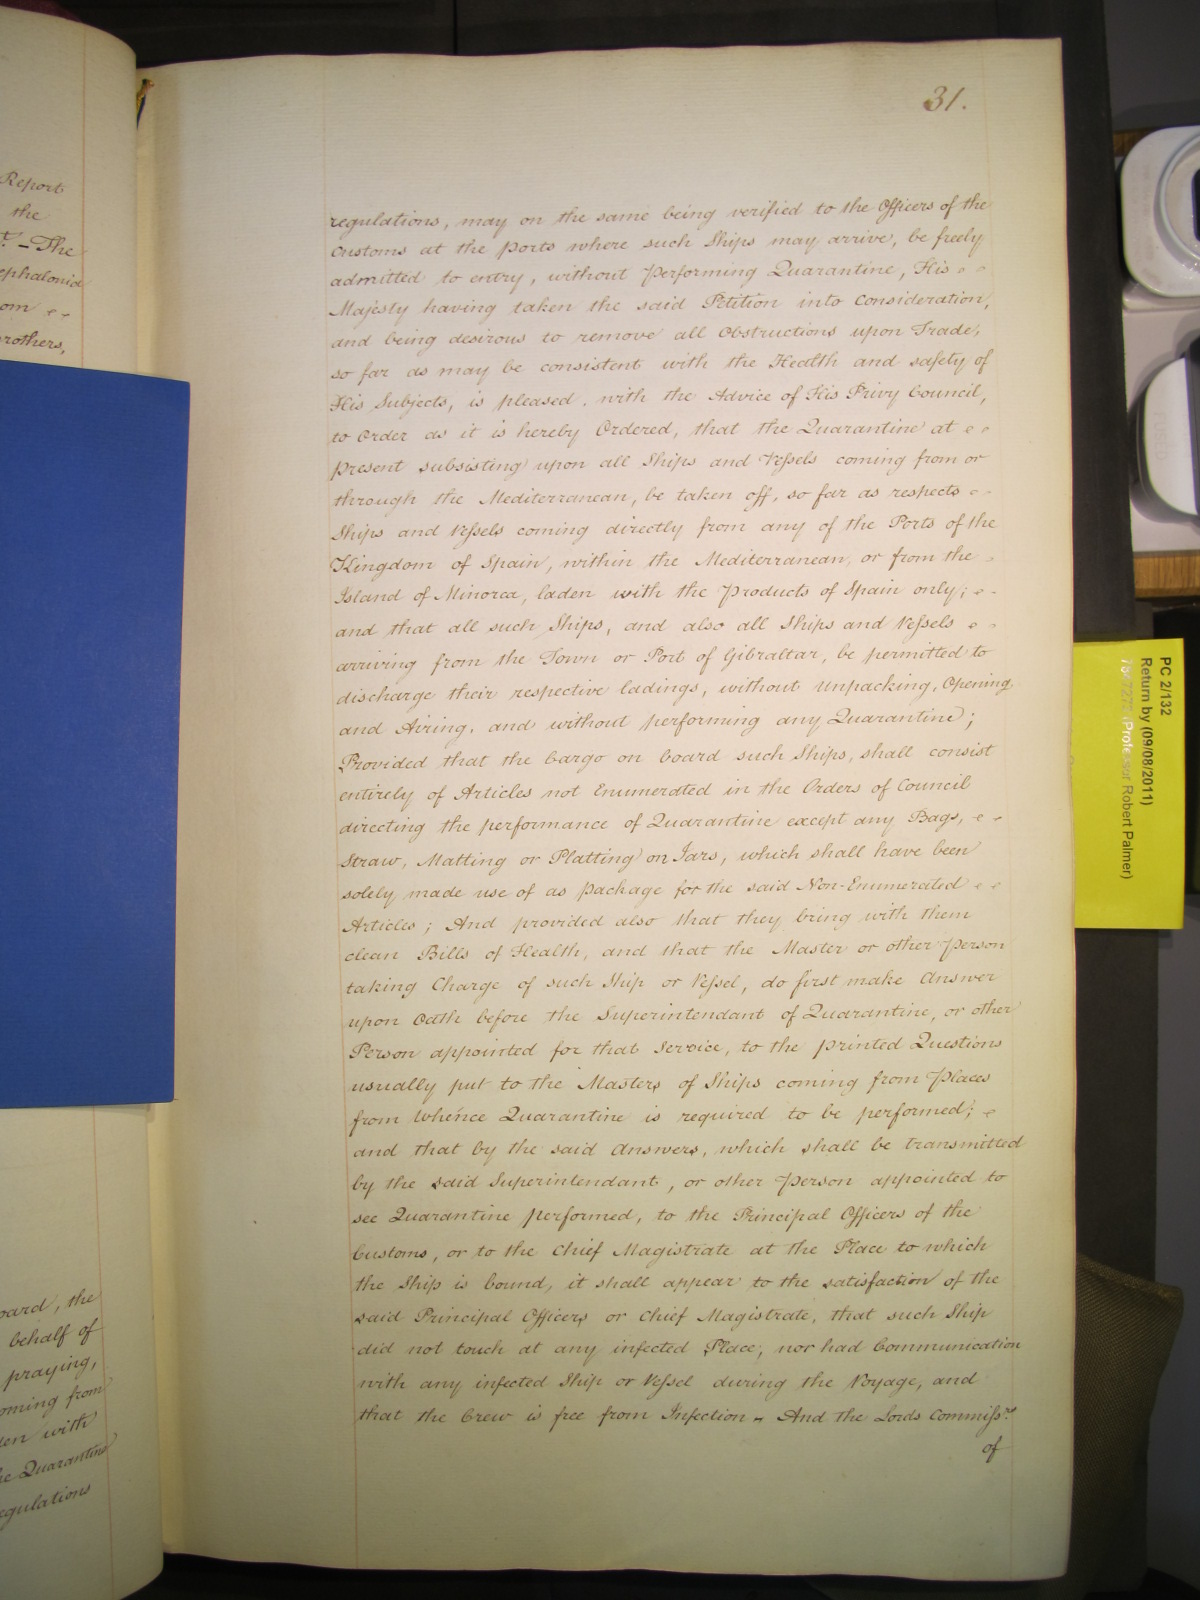 Report
the
- The
ephalonia
om
rothers,
oard, the
behalf of
praying,
oming from
en with
he Quarantine
egulations
31.
regulations, may on the same being verified to the Officers of the
Customs at the Ports where such Ships may arrive, be freely
admitted to entry, without performing Quarantine, His
Majesty having taken the said Petition into Consideration,
and being desirous to remove all Obstructions upon Trade,
so far as may be consistent with the Health and safety of
His Subjects, is pleased, with the Advice of His Privy Council,
to Order as it is hereby Ordered, that the Quarantine at
present subsisting upon all Ships and Vessels coming from or
through the Mediterranean, be taken off, so far as respects
Ships and Vessels coming directly from any of the Ports of the
Kingdom of Spain, within the Mediterranean, or from the
Island of Minorca, laden with the Products of Spain only;
and that all such Ships, and also all Ships and Vessels
arriving from the Town or Port of Gibraltar, be permitted to
discharge their respective ladings, without unpacking, Opening
and Airing, and without performing any Quarantine;
Provided that the Cargo on board such Ships, shall consist
entirely of Articles not Enumerated in the Orders of Council
directing the performance of Quarantine except any Bags,
Straw, Matting or Platting on Jars, which shall have been
solely made use of as package for the said Non-Enumerated
Articles; And provided also that they bring with them
clean Bills of Health, and that the Master or other person
taking Charge of such Ship or Vessel, do first make Answer
upon Oath before the Superintendant of Quarantine, or other
Person appointed for that Service, to the printed Questions
usually put to the Masters of Ships coming from Places
from Whence Quarantine is required to be performed;
and that by the said Answers, which shall be transmitted
by the said Superintendant, or other person appointed to
see Quarantine performed, to the Principal Officers of the
Customs, or to the Chief Magistrate at the Place to which
the Ship is bound, it shall appear to the satisfaction of the
said Principal Officers or Chief Magistrate, that such Ship
did not touch at any infected Place, nor had Communication
with any infected Ship or Vessel during the Voyage, and
that the Crew is free from Infection - And the Lords Commissrs
of
PC 2/132
Return by (09/08/2011)
(Professor Robert Palmer)